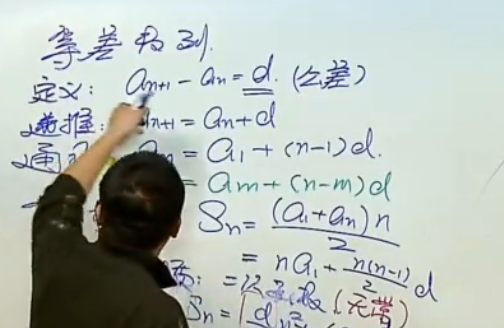 等差数列.
定义: aₙ₊₁ - aₙ = d. (公差)
递推: aₙ₊₁ = aₙ + d
通 aₙ = a₁ + (n-1)d.
= aₘ + (n-m)d
Sₙ = (a₁+aₙ)n/2
= na₁ + n(n-1)/2 d
质: = 次函数 (无常)
Sₙ = d n²